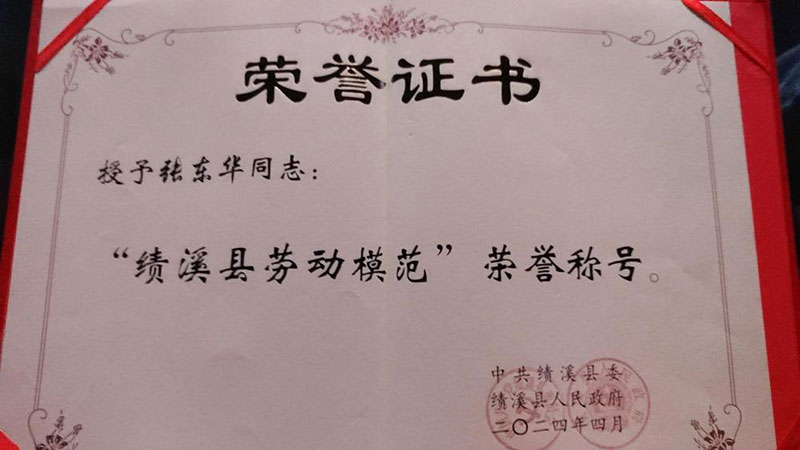 荣誉证书
授予张东华同志：
“绩溪县劳动模范”荣誉称号。
中共绩溪县委
绩溪县人民政府
二〇二四年四月